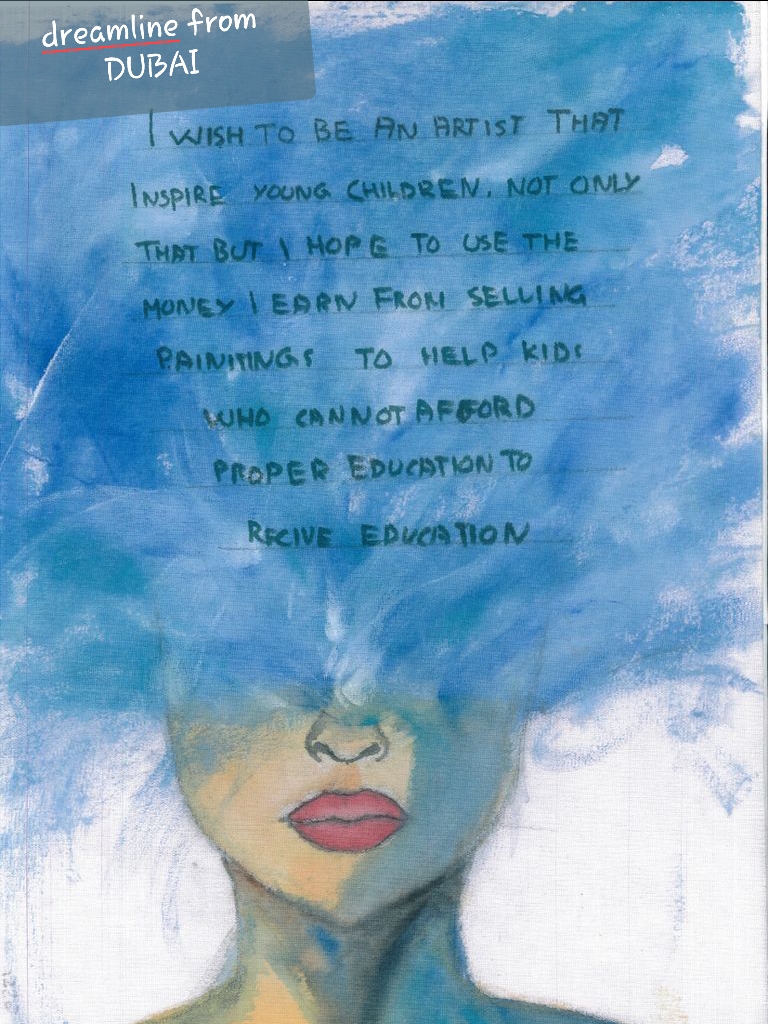 dreamline from
DUBAI
I WISH TO BE AN ARTIST THAT
INSPIRE YOUNG CHILDREN. NOT ONLY
THAT BUT I HOPE TO USE THE
MONEY I EARN FROM SELLING
PAINITINGS TO HELP KIDS
WHO CANNOT AFFORD
PROPER EDUCATION TO
RECIVE EDUCATION